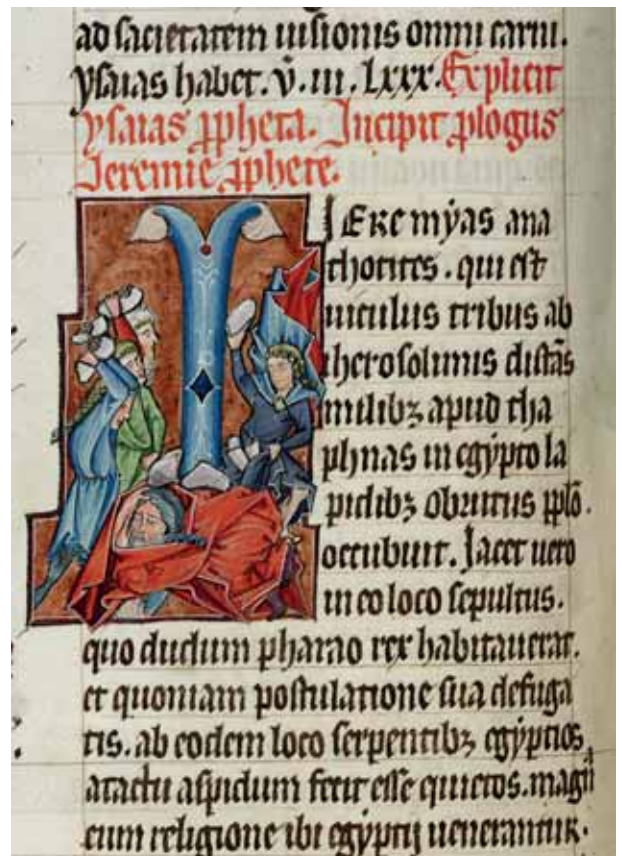 ad sacietatem uisionis omni carni.
ysaias habet. v̄. iii. lxxx. Explicit
ysaias ꝓpheta. Incipit ꝓlogus
Jeremie ꝓphete.
IEremyas ana
thotites. qui est
uiculus tribus ab
iherosolimis distās
milibꝫ apud tha
phnas in egypto la
pidibꝫ obrutus pplō.
occubuit. Iacet uero
in eo loco sepultus.
quo dudum pharao rex habitauerat.
et quoniam postulatione sua defuga
tis. ab eodem loco serpentibꝫ egyptios
atactu aspidum fecit esse quietos. magn̄
cum religione ibi egyptij uenerantur.